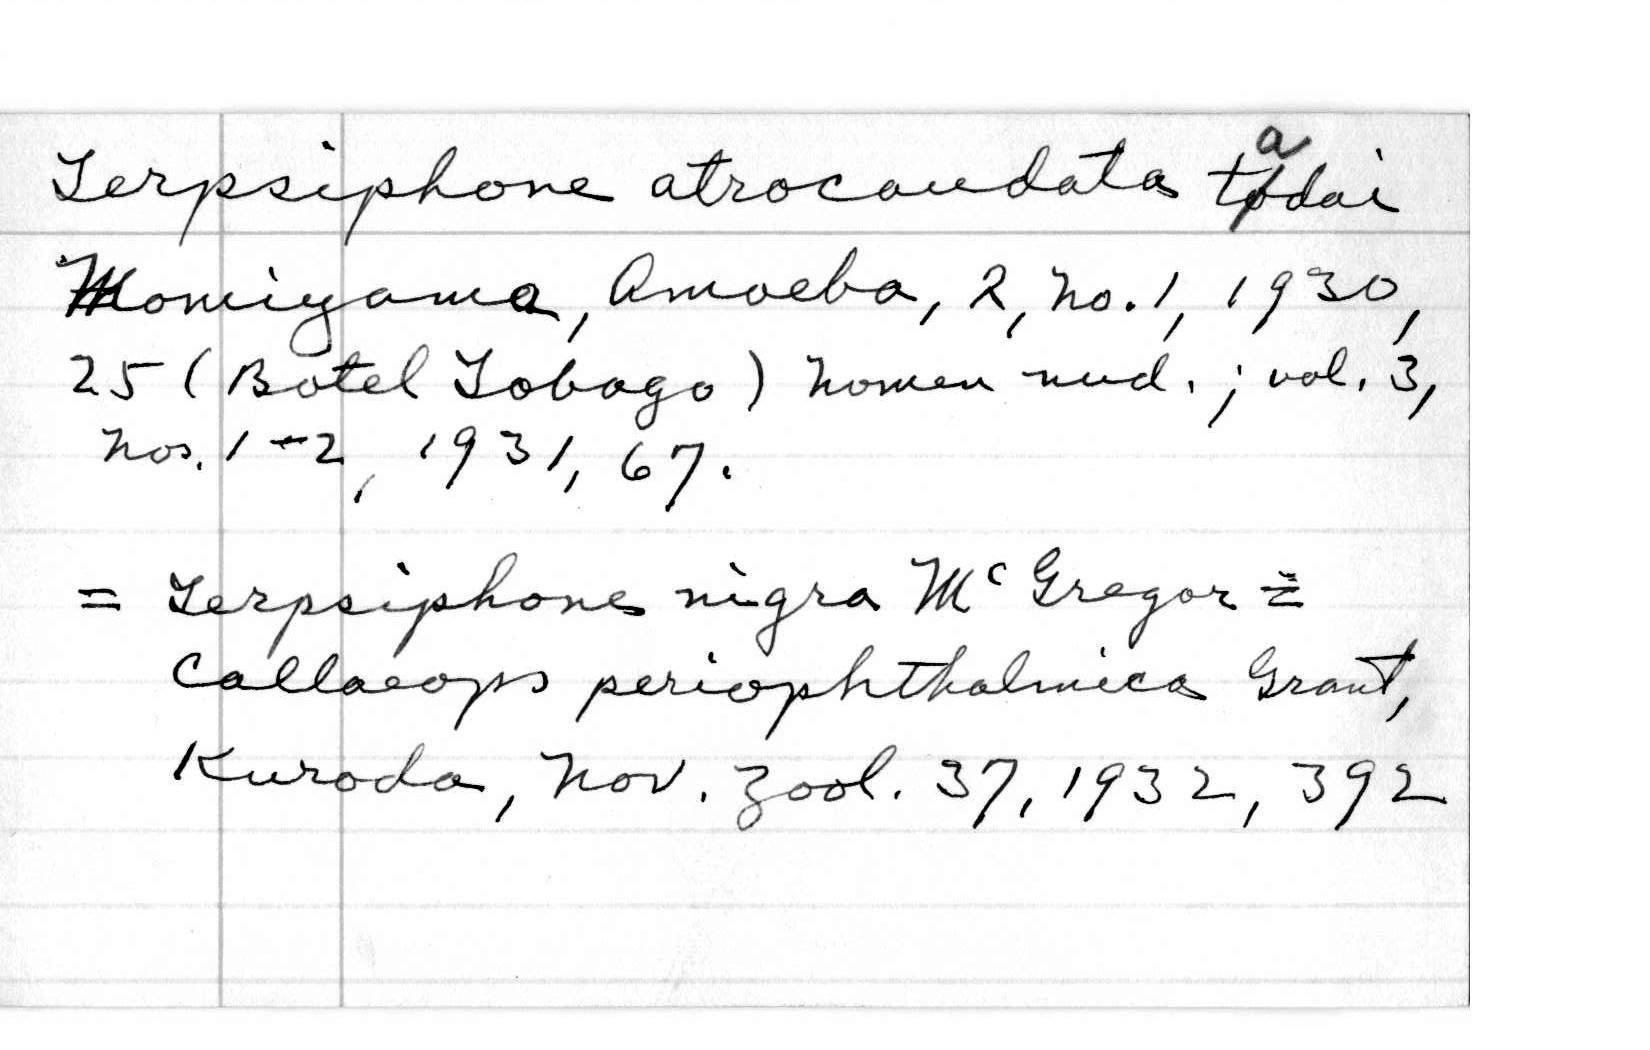 Terpsiphone atrocaudata tadai
Momiyama, Amoeba, 2, no. 1, 1930,
25 (Botel Tobago) nomen nud. ; vol. 3,
nos. 1-2, 1931, 67.
= Terpsiphone nigra McGregor =
Callaeops periophthalmica Grant,
Kuroda, Nov. Zool. 37, 1932, 392